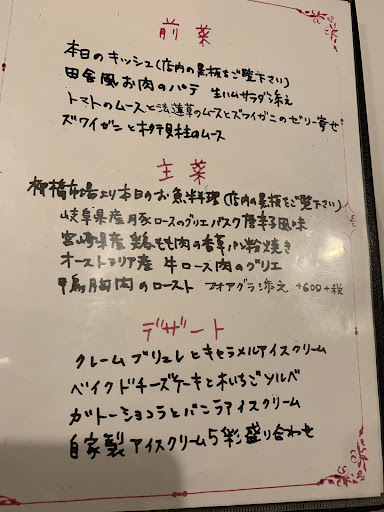 前菜
本日のキッシュ(店内の黒板をご覧下さい)
田舎風お肉のパテ 生ハムサラダ添え
トマトのムースと法蓮草のムースとズワイガニのゼリー寄せ
ズワイガニと帆立貝柱のムース
主菜
柳橋市場より本日のお魚料理(店内の黒板をご覧下さい)
岐阜県産豚ロースのグリエバスク唐辛子風味
宮崎県産鶏もも肉の香草パン粉焼き
オーストラリア産 牛ロース肉のグリエ
鴨胸肉のロースト フォアグラ添え +600+税
デザート
クレームブリュレとキャラメルアイスクリーム
ベイクドチーズケーキと木いちごソルベ
ガトーショコラとバニラアイスクリーム
自家製アイスクリーム5彩盛り合わせ